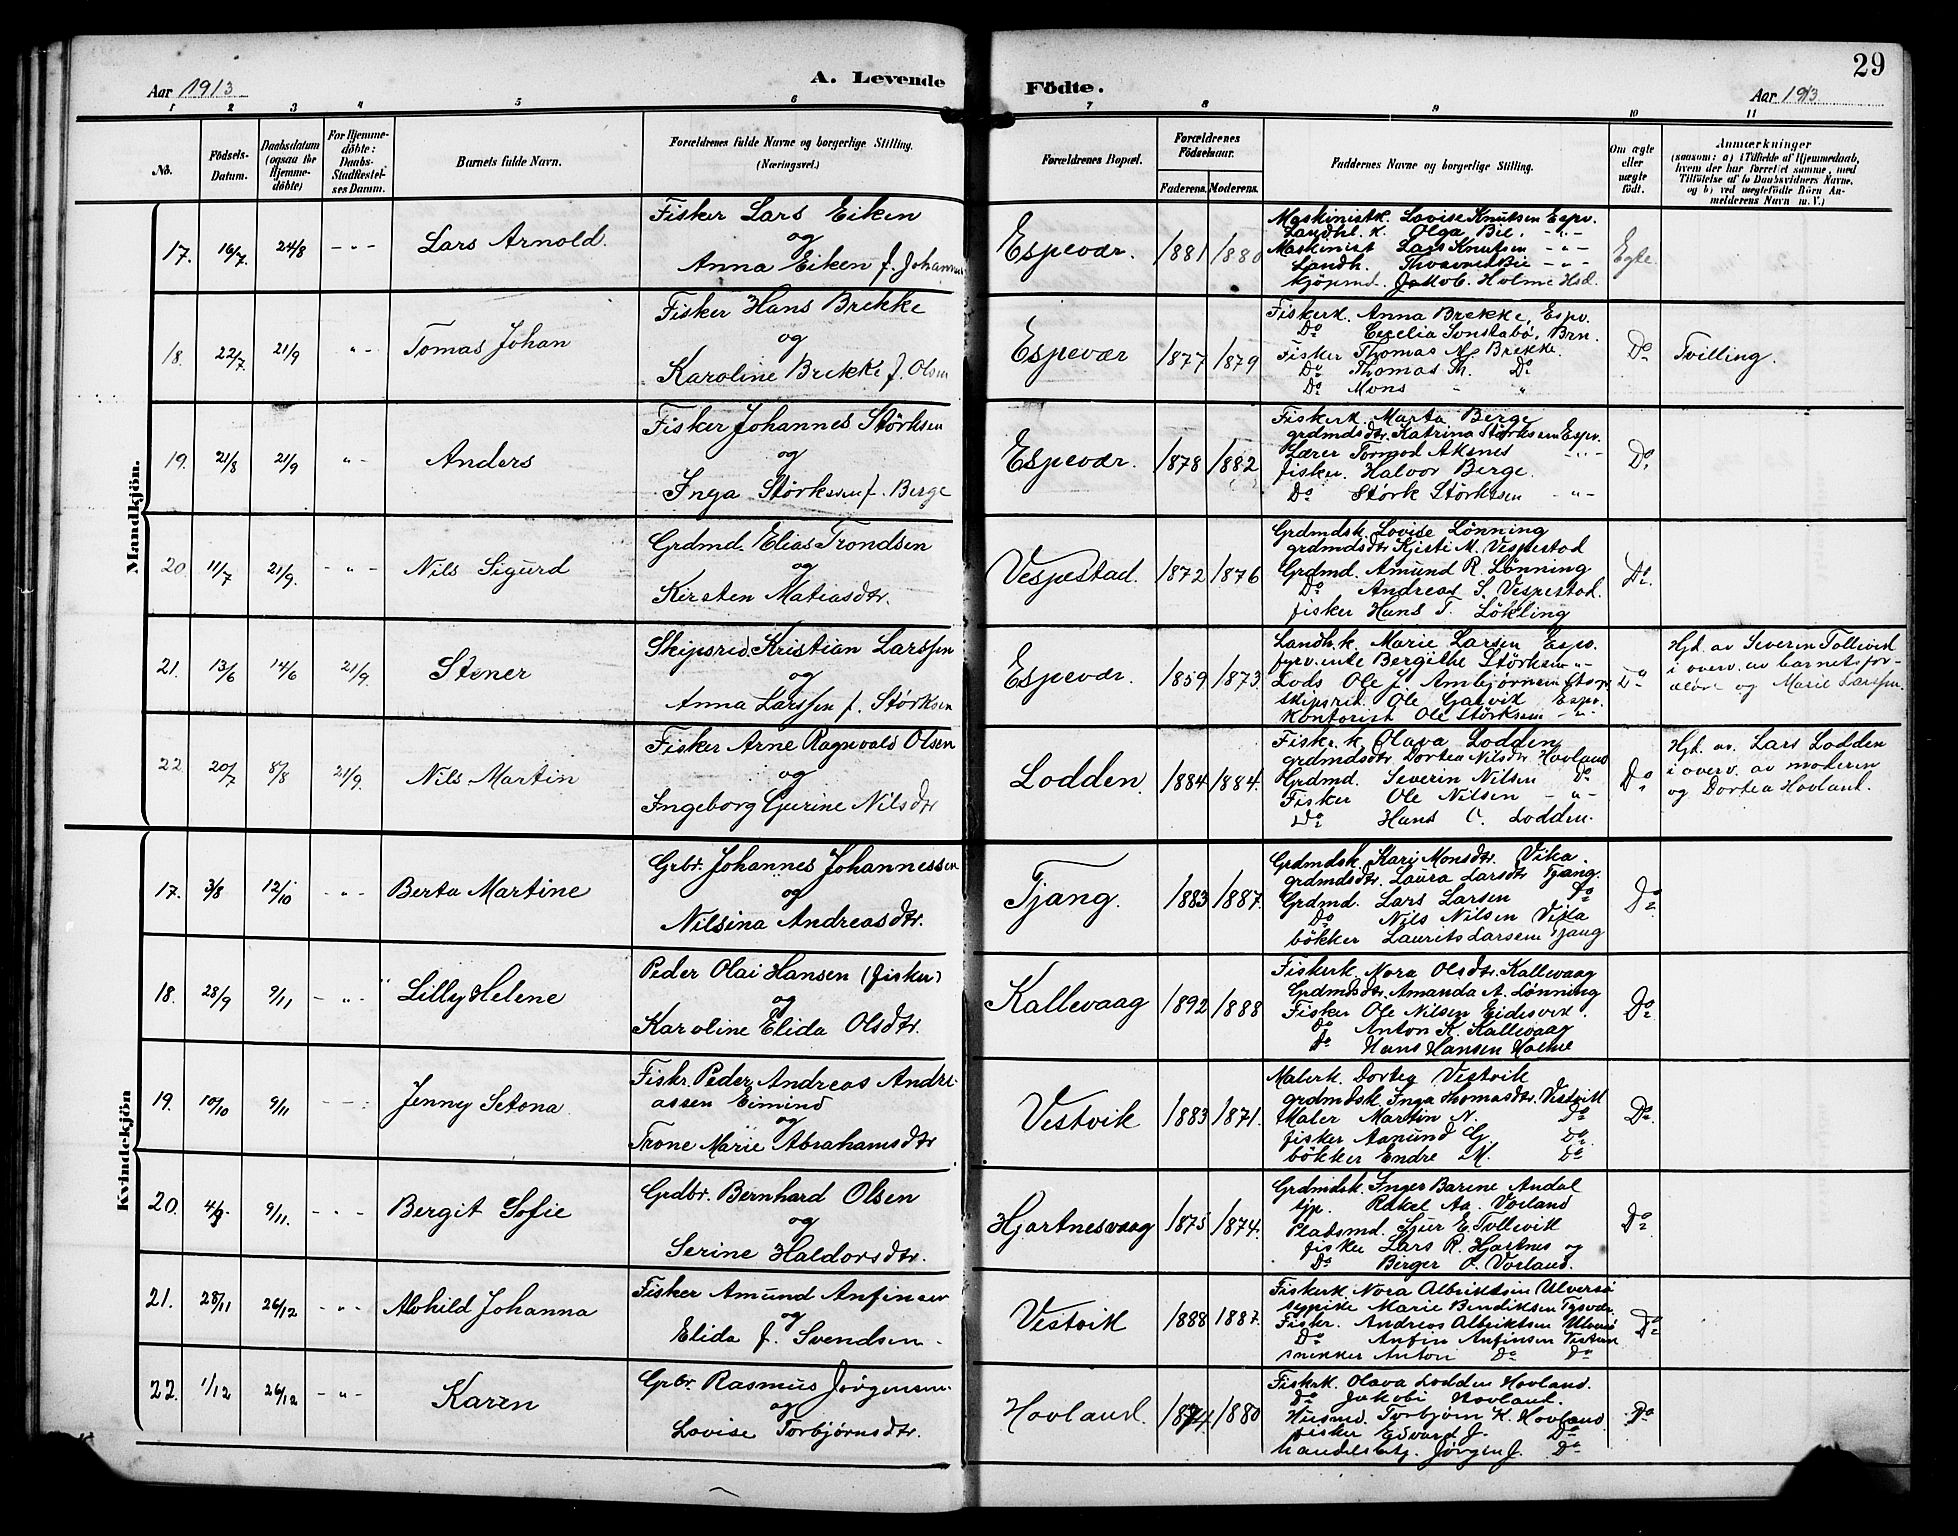 29
Aar 1913
A. Levende
Födte.
Aar 1913
1 2 3 4 5 6 7 8 9 10 11
No.
Födsels-Datum.
Daabsdatum (ogsaa for Hjemme-döbte)
For Hjemme-döbte: Daabs-Stadfæstel-ses Datum.
Barnets fulde Navn.
Forældrenes fulde Navne og borgerlige Stilling. (Næringsvei.)
Forældrenes Bopæl.
Forældrenes Födselsaar.
Faderens. Moderens.
Faddernes Navne og borgerlige Stilling.
Om ægte eller uægte födt.
Anmærkninger
(saasom: a) i Tilfælde af Hjemmedaab, hvem der har forrettet samme, med Tilföielse af to Daabsvidners Navne, og b) ved uægtefödte Börn An-melderens Navn m. V.)
Mandkjön.
17. 16/7. 24/8 -"- Lars Arnold.
Fisker Lars Eiken
og
Anna Eiken f. Johannes
Espevær. 1881 1880
Maskinistk. Lovise Knutsen Espv.
Landhl. k. Olga Bie, -"-
Maskinist Lars Knutsen -"-
Landh. Thorvald Bie -"-
kjøpmd. Jakob Holme Hsd.
Egte.
18. 22/7 21/9 "- Tomas Johan
Fisker Hans Brekke
og
Karoline Brekke f. Olsen
Espevær 1877 1879
Fiskerk. Anna Brekke, Espv.
Do Cecelia Sonstabö, Brn.
Fisker Thomas N. Brekke.
Do Thomas Th. Do
Do Mons "
Do Tvilling.
19. 21/8 21/9 "- Anders
Fisker Johannes Störksen
og
Inga Störksen f. Berge
Espevær. 1878 1882
Fiskerk Marta Berge
grdmdsdtr. Katrina Störksen Espv.
Lærer Tormod Aknes -"-
fisker. Halvor Berge.
Do Störk Störksen -"-
Do.
20. 11/7 21/9. -"- Nils Sigurd
Grdmd. Elias Trondsen
og
Kirsten Matiasdtr.
Vespestad. 1872 1876
Grdmdsk. Lovise Lönning
grdmdsdtr. Kjisti M. Vespestad
Grdmd. Amund R. Lönning
Do Andreas S. Vespestad.
fisker Hans T. Lökling
Do.
21. 13/6 14/6 21/9. Stener
Skipsred Kristian Larssen
og
Anna Larssen f. Störksen
Espevær. 1859 1873.
Landh.k. Marie Larsen Espv.
fyrv.ente Bergithe Störksen -"-
Lods Ole J. Ambjörnsen
skipsred. Ole Gatvik Espv.
kontorist Ole Störksen -"-
Do
Hjd. av Severin Tollevik
i overv. av barnets for-
ældre og Marie Larssen.
22 20/7 8/8 21/9. Nils Martin
Fisker Arne Ragnvald Olsen
og
Ingeborg Gurine Nilsdtr
Lodden. 1884 1884.
Fisker.k Olava Lodden
grdmdsdtr. Dortea Nilsdtr. Hovland
Grdmd. Severin Nilsen Do
Fisker Ole Nilsen -"-
Do Hans O. Lodden.
Do
Hjd. av. Lars Lodden
i overv. av moderen
og Dortea Hovland.
Kvindekjön
17. 3/8 12/10 -"- Berta Martine
Grbr. Johannes Johannessen
og
Nilsina Andreasdtr.
Tjang. 1883 1887.
Grdmdsk. Kari Monsdtr. Vika.
grdmdsdtr. Laura Larsdtr Tjang.
Grdmd. Lars Larsen Do
Do Nils Nilsen Vika
bökker Laurits Larsen Tjang
Do
18. 28/9 9/11 -"- Lilly Helene
Peder Olai Hansen (fisker)
og
Karoline Elida Olsdtr.
Kallevaag 1892 1888
Fiskerk. Nora Olsdtr. Kallevaag
Grdmdsdtr. Amanda A. Lönning
Fisker Ole Nilsen Eidesvik.
Do Anton K. Kallevaag
Do Hans Hansen Holme
Do
19. 10/10 9/11 Jenny Setona
Fiskr. Peder Andreas Andre-
assen Eimind
og
Trone Marie Abrahamsdtr
Vestvik 1883 1871.
Malerk. Dortea Vestvik
grdmdsk. Inga Thomasdtr. Vestvik
Maler Martin N. Do
fisker Aamund G. Do
bökker Endre M. Do
Do.
20. 4/9. 9/11. -"- Bergit Sofie
Grdbr. Bernhard Olsen
og
Serine Haldorsdtr.
Hjartnesvaag 1875 1874.
Grdmdsk. Inger Barine Andal
tjp. Rakel Aa. Vorland
Pladsmd. Sjur E. Tollevik
fisker Lars R. Hjartnes og
Do Berger O. Vorland.
Do
21. 28/11 26/12 -"- Alvhild Johanna
Fisker Amund Anfinsen
og
Elida f. Svendsen
Vestvik 1888 1887.
Fiskerk Nora Albriktsen Ulversö
sypike Marie Bendiksen Tysvær.
Fiskr. Andreas Albriktsen Ulversö
Do Anfin Anfinsen
snekker Anton Do Do
Do
22. 1/12 26/12 -"- Karen
Grbr. Rasmus Jörgensen.
og
Lovise Torbjörnsdtr.
Hovland. 1874 1880
Fiskerk. Olava Lodden Hovland.
Do Jakobi Hovland.
Husmd. Torbjörn K. Hovland
fisker Edvard J. Do
handelsbtj. Jörgen J. Do
Do